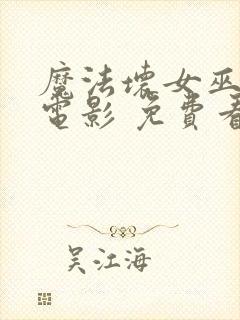 魔法壞女巫
電影 免費看
吴江海